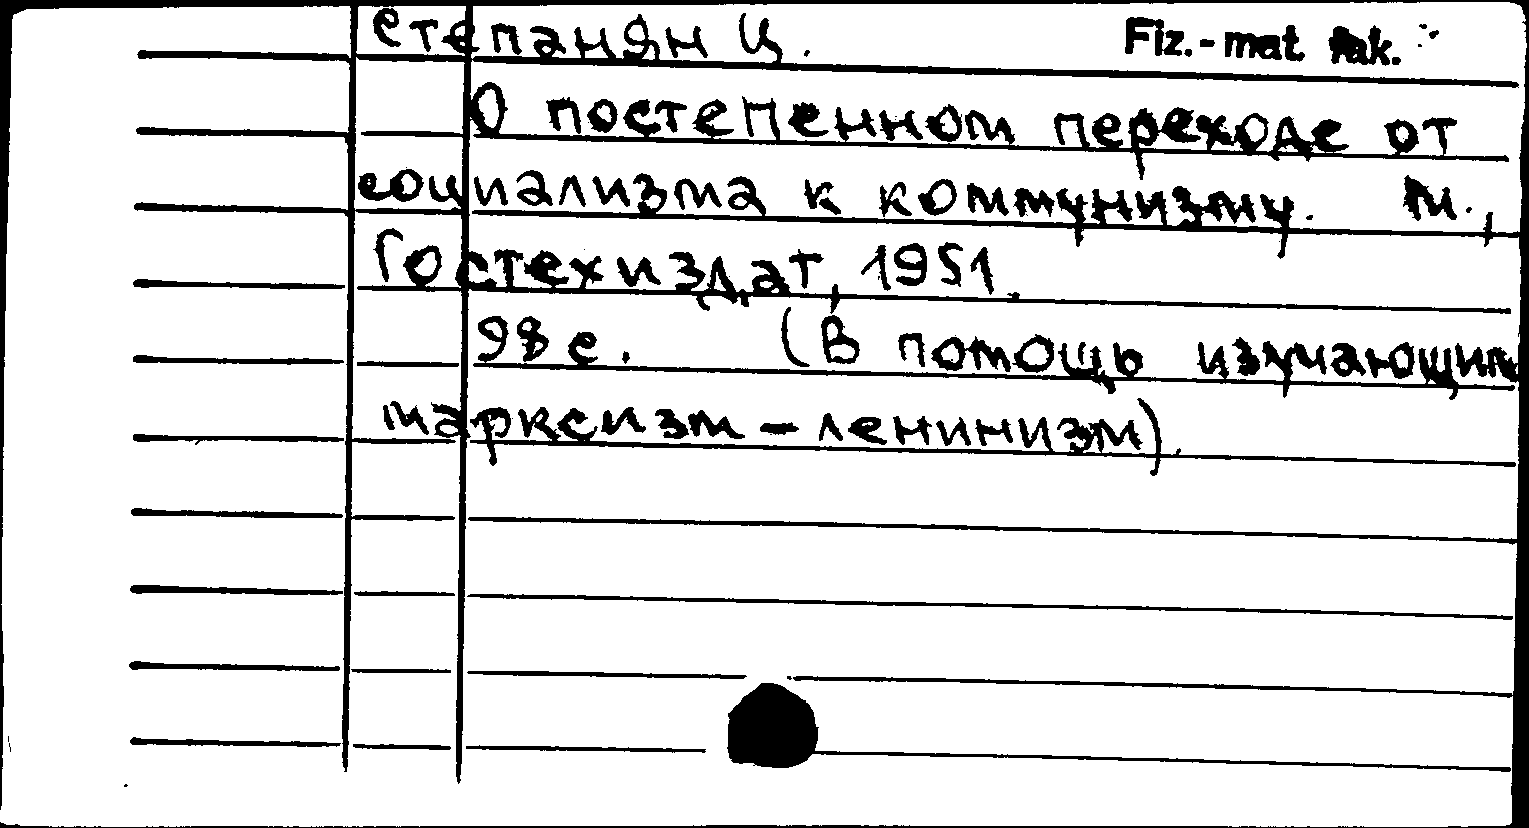 Степанян Ц. Fiz.-mat. fak.
О постепенном переходе от
социализма к коммунизму. М.,
Гостехиздат, 1951.
98 с. (В помощь изучающим
марксизм-ленинизм).